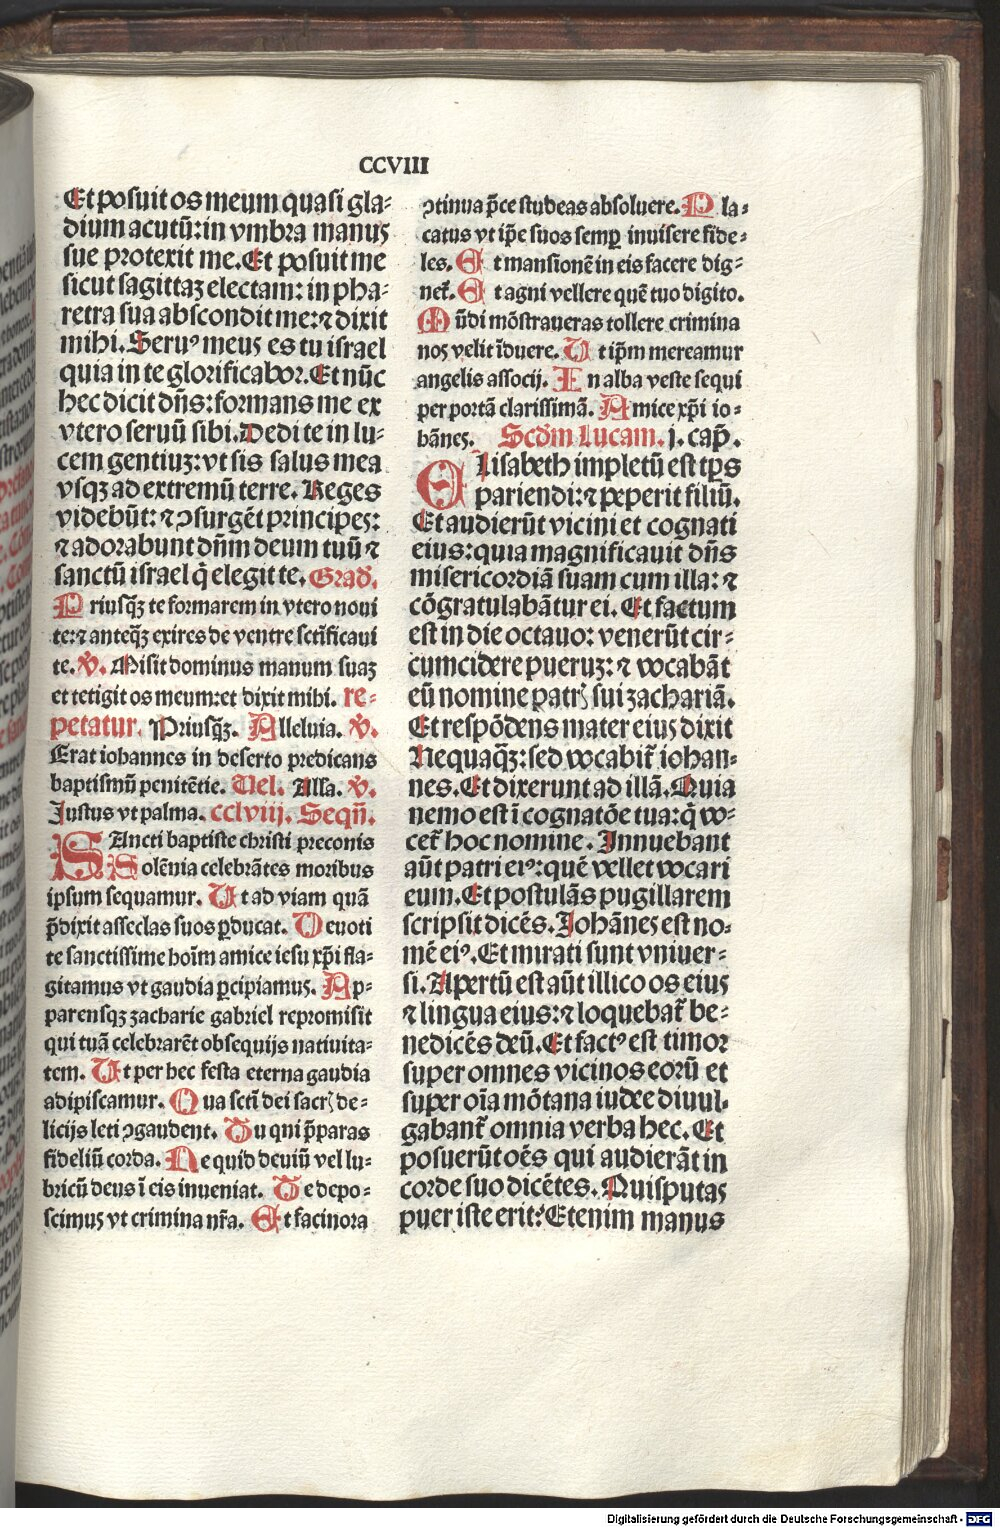 CCVIII
Et posuit os meum quasi gla⸗
dium acutū: in vmbra manus
sue protexit me. Et posuit me
sicut sagittaz electam: in pha⸗
retra sua abscondit me: ⁊ dixit
mihi. Seruꝰ meus es tu israel
quia in te glorificabor. Et nūc
hec dicit dn̄s: formans me ex
vtero seruū sibi. Dedi te in lu⸗
cem gentiuz: vt sis salus mea
vsqz ad extremū terre. Reges
videbūt: ⁊ ꝯsurgēt principes:
⁊ adorabunt dn̄m deum tuū ⁊
sanctū israel q̄ elegit te. Grad̄.
Priusq̄z te formarem in vtero noui
te: ⁊ anteq̄z exires de ventre sct̄ificaui
te. ℣. Misit dominus manum suaz
et tetigit os meum: et dixit mihi. re⸗
petatur. Priusq̄z. Alleluia. ℣.
Erat iohannes in deserto predicans
baptismū penitētie. Uel. Alla. ℣.
Justus vt palma. cclviij. Seqn̄.
SAncti baptiste christi preconis
Solēnia celebrātes moribus
ipsum sequamur. Ut ad viam quā
p̄dixit asseclas suos ꝑducat. Deuoti
te sanctissime hoīm amice iesu xp̄i fla⸗
gitamus vt gaudia ꝑcipiamus. Ap⸗
parensqz zacharie gabriel repromisit
qui tuā celebrarēt obsequijs natiuita⸗
tem. Ut per hec festa eterna gaudia
adipiscamur. Qua sctī dei sacrꝭ de⸗
licijs leti ꝯgaudent. Tu qui p̄paras
fideliū corda. Ne quid deuiū vel lu⸗
bricū deus ī eis inueniat. Te depo⸗
scimus vt crimina nr̄a. Et facinora
ꝯtinua p̄ce studeas absoluere. Pla⸗
catus vt ip̄e suos semꝑ inuisere fide⸗
les. Et mansionē in eis facere dig⸗
net᷑. Et agni vellere quē tuo digito.
Mūdi mōstraueras tollere crimina
nos velit īduere. Ut ip̄m mereamur
angelis associj. In alba veste sequi
per portā clarissimā. Amice xp̄i io⸗
hānes. Scd̄m Lucam. j. cap̄.
ELisabeth impletū est tp̄s
pariendi: ⁊ peperit filiū.
Et audierūt vicini et cognati
eius: quia magnificauit dn̄s
misericordiā suam cum illa: ⁊
cōgratulabātur ei. Et factum
est in die octauo: venerūt cir⸗
cumcidere pueruz: ⁊ vocabāt
eū nomine patrꝭ sui zachariā.
Et respōdens mater eius dixit
Nequaq̄z: sed vocabit᷑ iohan⸗
nes. Et dixerunt ad illā. Quia
nemo est ī cognatōe tua: q̄ vo⸗
cet᷑ hoc nomine. Innuebant
aūt patri eiꝰ: quē vellet vocari
eum. Et postulās pugillarem
scripsit dicēs. Johānes est no⸗
mē eiꝰ. Et mirati sunt vniuer⸗
si. Apertū est aūt illico os eius
⁊ lingua eius: ⁊ loquebat᷑ be⸗
nedicēs deū. Et factꝰ est timor
super omnes vicinos eorū et
super oīa mōtana iudee diuul⸗
gabant᷑ omnia verba hec. Et
posuerūt oēs qui audierāt in
corde suo dicētes. Quisputas
puer iste erit? Etenim manus
Digitalisierung gefördert durch die Deutsche Forschungsgemeinschaft - DFG